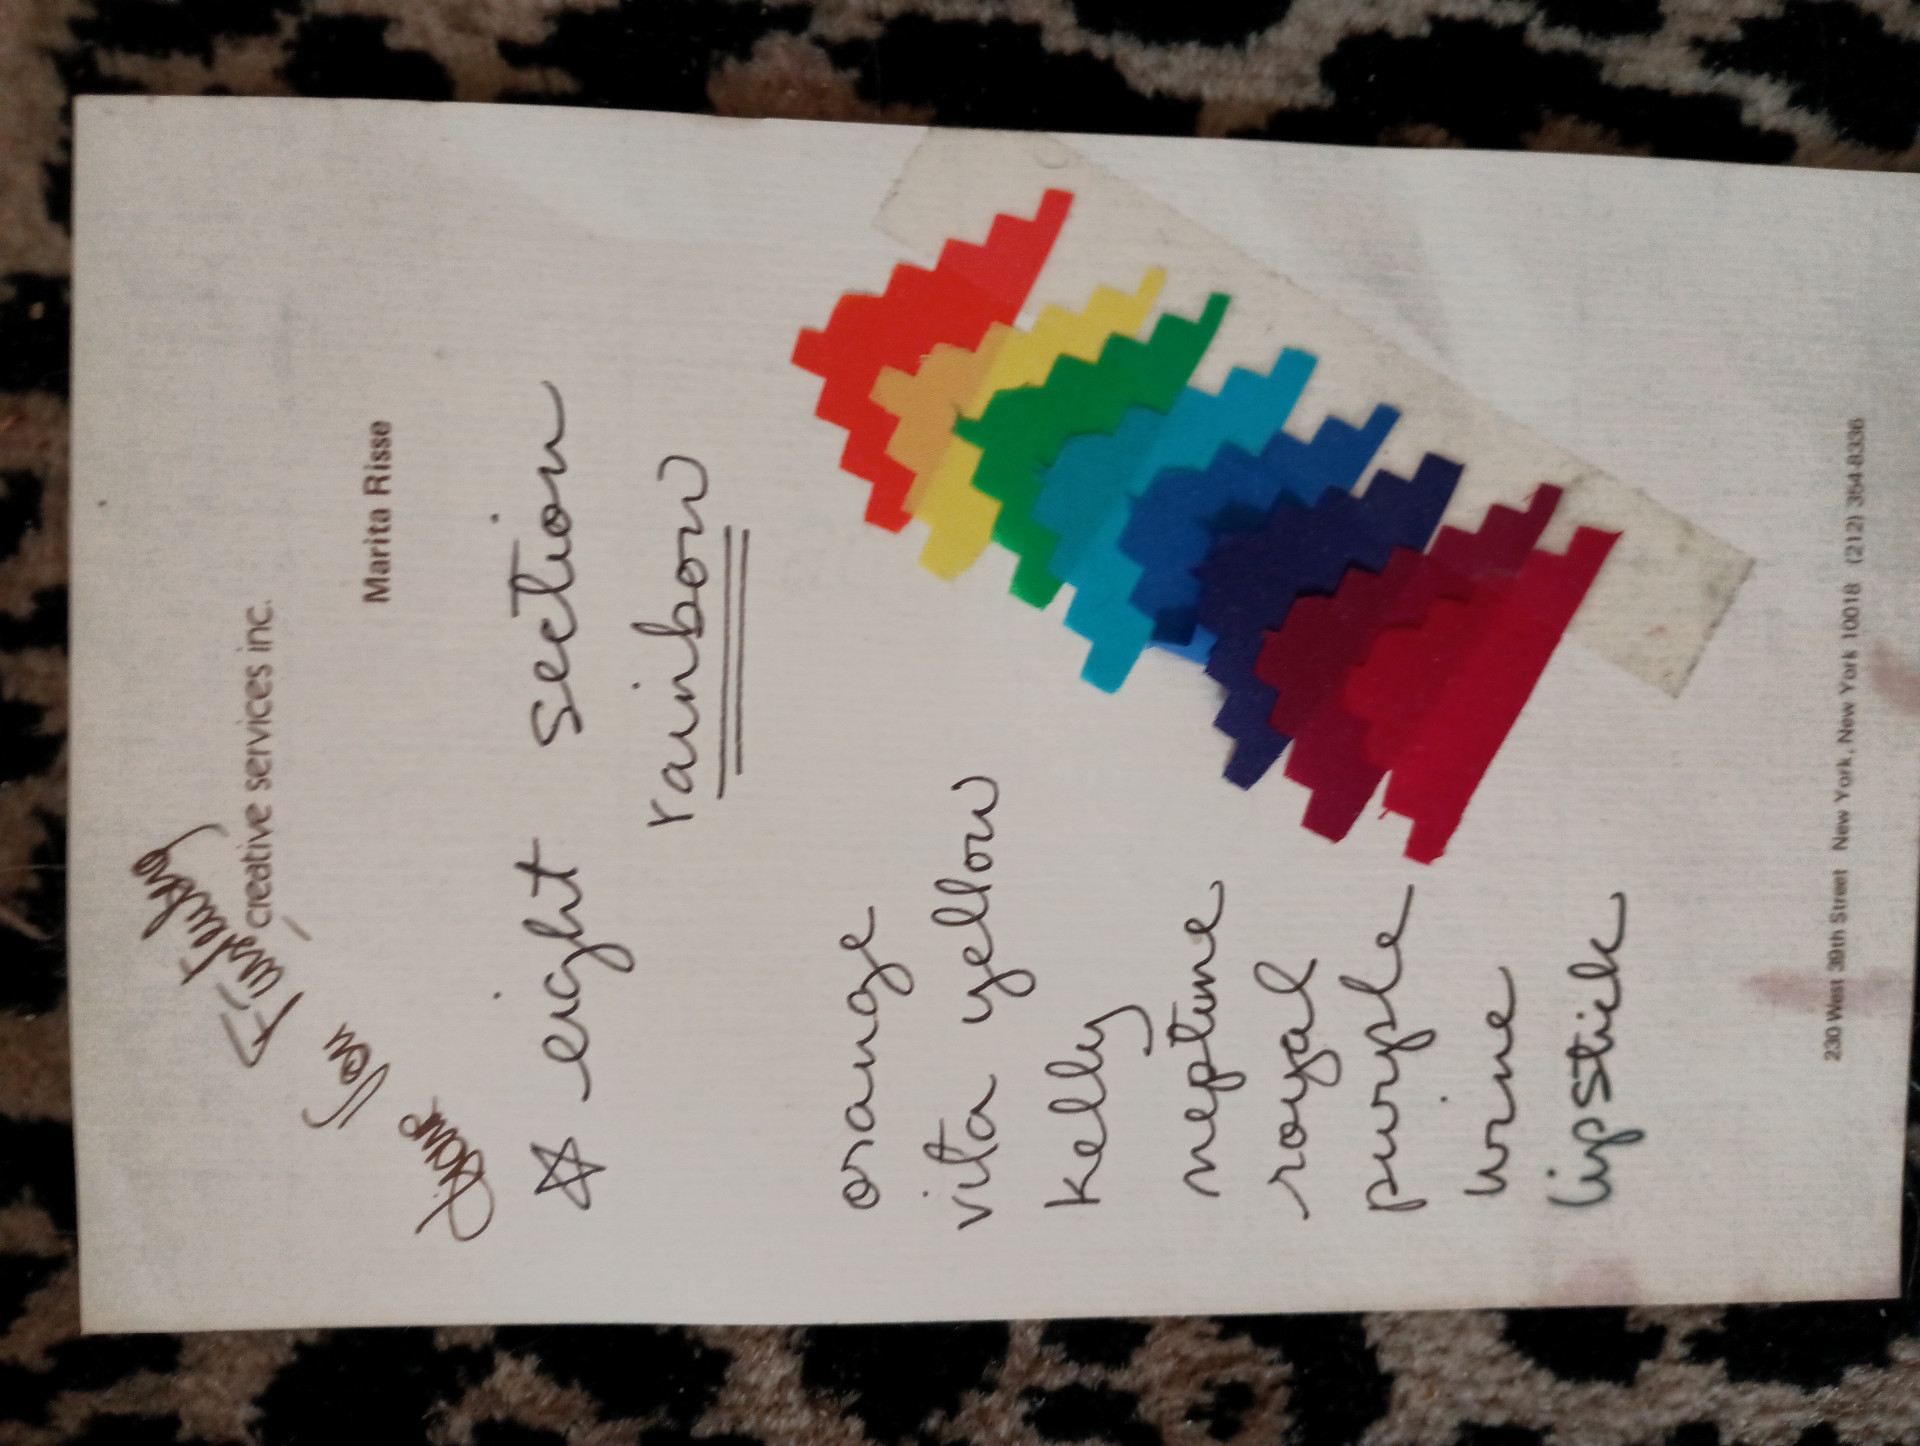 creative services inc.
Marita Risse
☆ eight section
rainbow
orange
vita yellow
Kelly
neptune
royal
purple
wine
lipstick
230 West 39th Street New York, New York 10018 (212) 354-8336